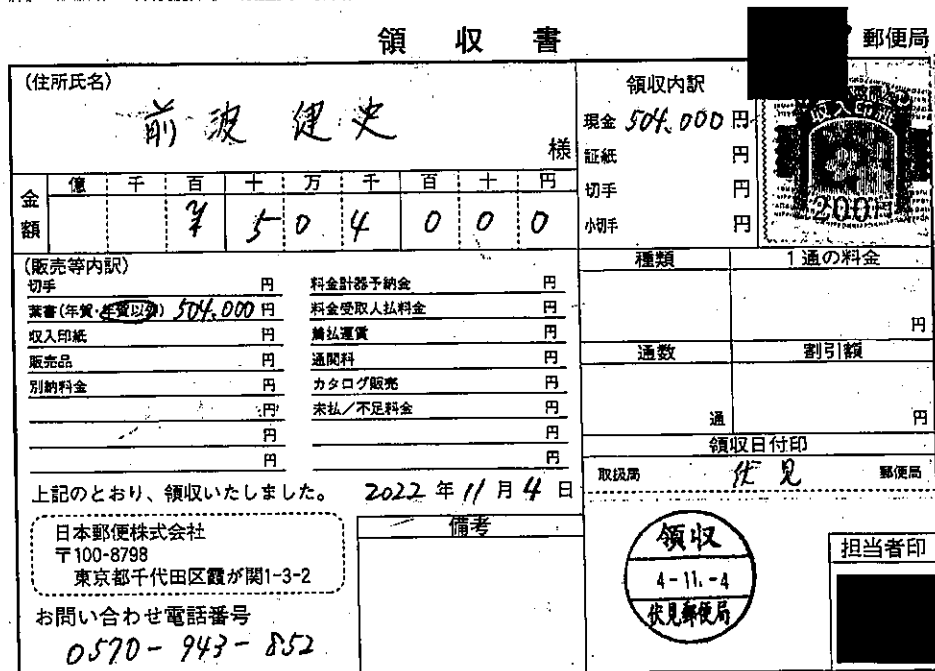 領 収 書
郵便局
(住所氏名)
前波 健史
様
領収内訳
現金 504,000 円
証紙 円
切手 円
小切手 円
収入印紙
200円
金額
億 千 百 十 万 千 百 十 円
¥ 5 0 4 0 0 0
(販売等内訳)
切手 円
葉書(年賀・年賀以外) 504,000 円
収入印紙 円
販売品 円
別納料金 円
円
円
円
料金計器予納金 円
料金受取人払料金 円
着払運賃 円
通関料 円
カタログ販売 円
未払/不足料金 円
円
円
種類 1通の料金
円
通数 割引額
通 円
領収日付印
取扱局 伏見 郵便局
上記のとおり、領収いたしました。 2022 年 11 月 4 日
日本郵便株式会社
〒100-8798
東京都千代田区霞が関1-3-2
お問い合わせ電話番号
0570-943-852
備考
領収
4-11.-4
伏見郵便局
担当者印